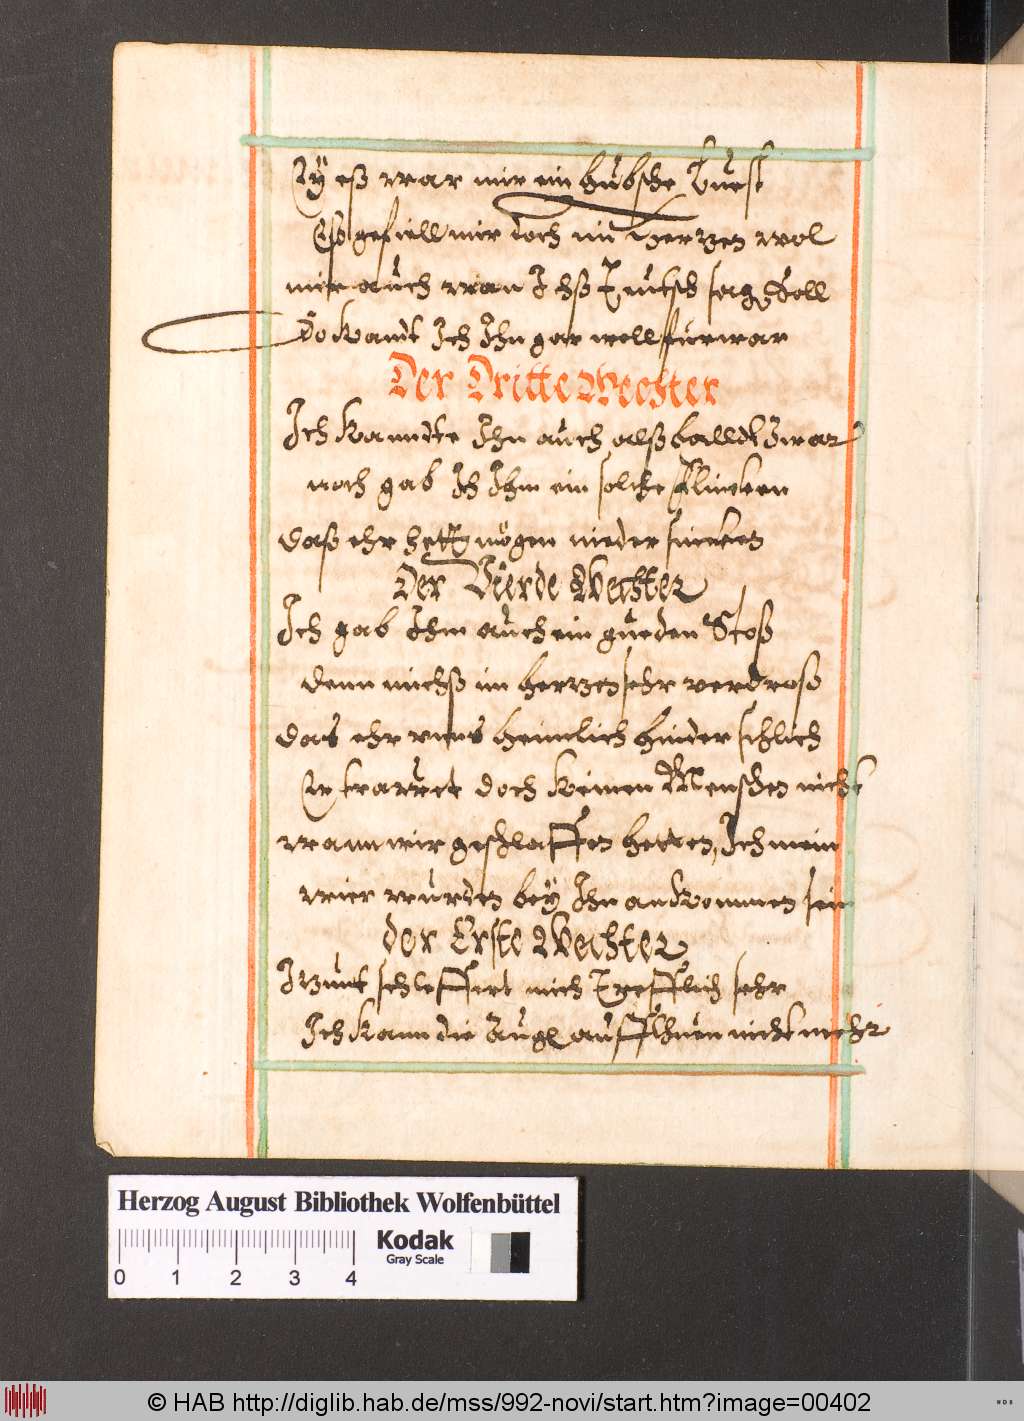 Ey eß war mir ein hübsche kunst
Es gefiell mir doch im Herzen wol
mir auch wan Ichß Teutsch sag soll
Do kandt Ich Ihn gar well fürwar
Der Dritte Wechter
Ich kanndte Ihn auch alß balldt Zwar
noch gab Ich Ihm ein solche flincken
daß ehr hett mögen nieder sincken
Der Vierde Wechter
Ich gab Ihm auch ein gueden Stoß
denn michß im herzen sehr verdroß
das ehr vnns heimlich hinder schlich
Er trawet doch keinen Menschen nicht
wann wir geschlaffen hetten, Ich mein
wier würden bey Ihn ankommen sein
der Erste Wechter
Izunt schleffert mich Trefflich sehr
Ich kann die Auge auff thuen nicht mehr
Herzog August Bibliothek Wolfenbüttel
0 1 2 3 4
Kodak
Gray Scale
© HAB http://diglib.hab.de/mss/992-novi/start.htm?image=00402